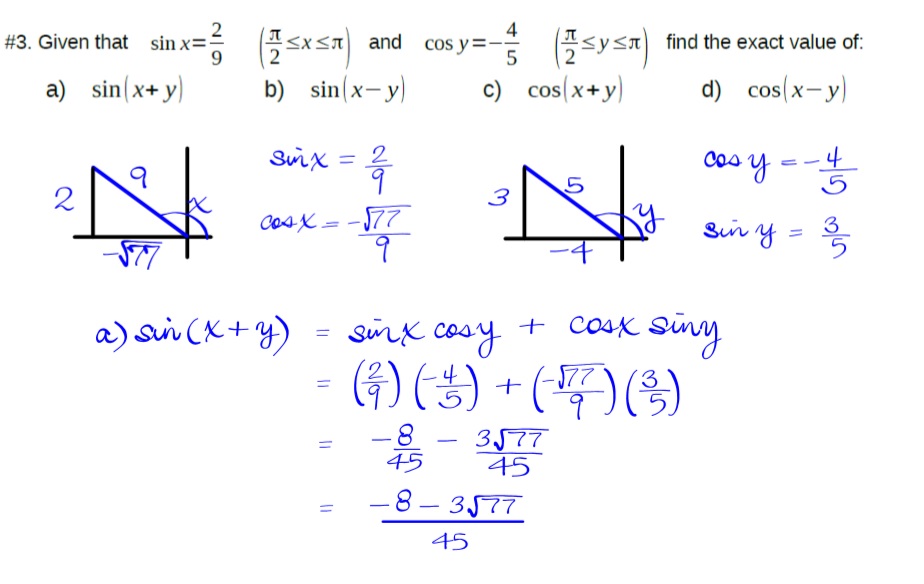 #3. Given that sin x = 2/9 (π/2 ≤ x ≤ π) and cos y = −4/5 (π/2 ≤ y ≤ π) find the exact value of:
a) sin(x + y) b) sin(x − y) c) cos(x + y) d) cos(x − y)
2 9 x −√77
sin x = 2/9
cos x = −√77/9
3 5 y −4
cos y = −4/5
sin y = 3/5
a) sin(x + y) = sin x cos y + cos x sin y
= (2/9)(−4/5) + (−√77/9)(3/5)
= −8/45 − 3√77/45
= −8 − 3√77 / 45